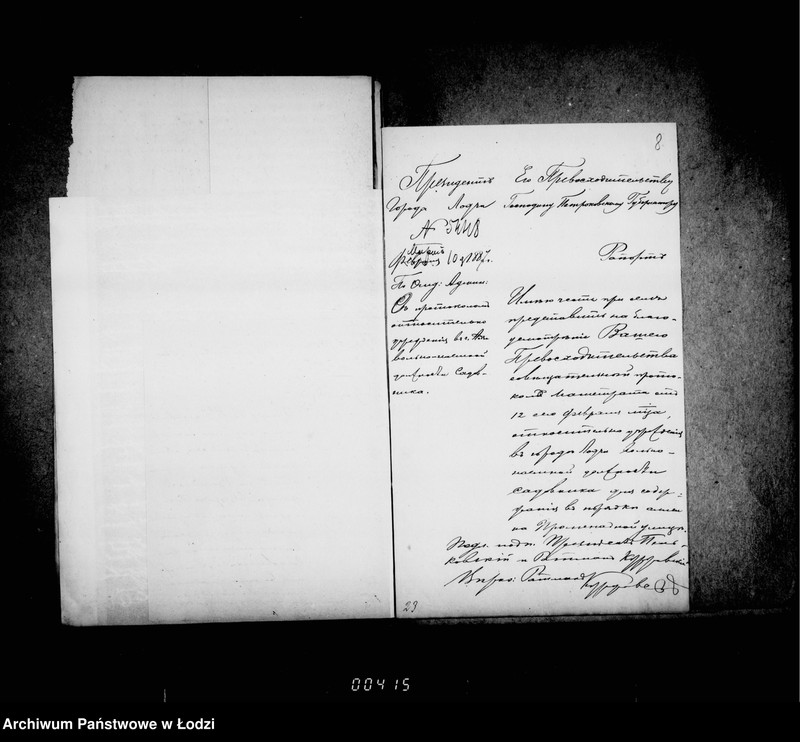 8.
Президентъ
Города Лодзи
№ 5448
Февраля 10 д. 1887 г.
По Отд: Админ:
Съ протоколомъ
относительно
учрежденія въ г. Лодзи
вольнонаемной
должности садов-
ника.
Его Превосходительству
Господину Петроковскому Губернатору
Рапортъ
Имѣю честь при семъ
представить на благо-
усмотрѣніе Вашего
Превосходительства
совѣщательный прото-
колъ Магистрата отъ
12 сего февраля мѣсяца,
относительно учрежденія
въ городѣ Лодзи вольно-
наемной должности
садовника для содер-
жанія въ порядкѣ аллеи
на Променадной улицѣ.
Подл. подп. Президентъ Пень-
ковскій и Ратманъ
Вѣрно: Ратманъ
29
00415
Archiwum Państwowe w Łodzi